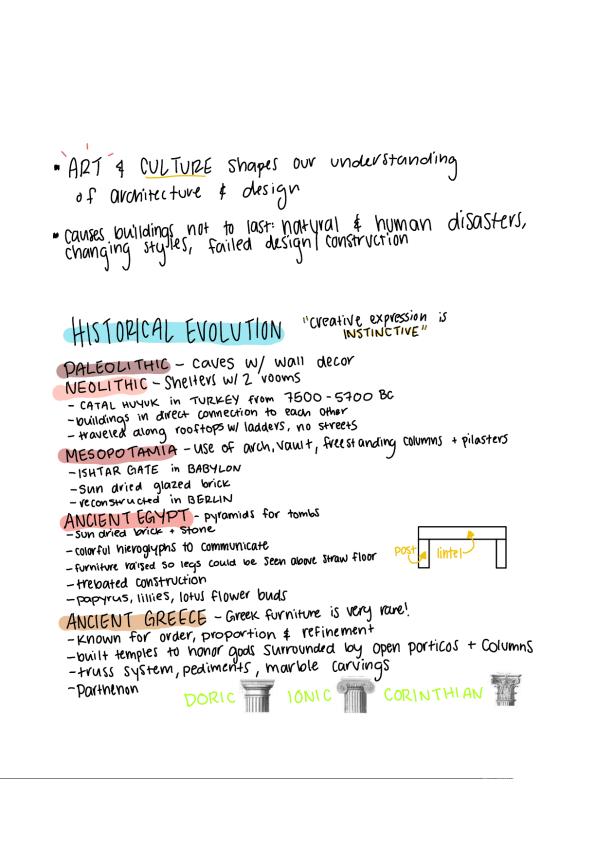 ▪ ART & CULTURE shapes our understanding
of architecture & design
▪ causes buildings not to last: natural & human disasters,
changing styles, failed design/construction
HISTORICAL EVOLUTION
"creative expression is
INSTINCTIVE"
PALEOLITHIC - Caves w/ wall decor
NEOLITHIC - Shelters w/ 2 rooms
- CATAL HUYUK in TURKEY from 7500-5700 BC
- buildings in direct connection to each other
- traveled along rooftops w/ ladders, no streets
MESOPOTAMIA - use of arch, vault, freestanding columns + pilasters
- ISHTAR GATE in BABYLON
- Sun dried glazed brick
- reconstructed in BERLIN
ANCIENT EGYPT - pyramids for tombs
- sun dried brick + stone
- colorful hieroglyphs to communicate
- furniture raised so legs could be seen above straw floor
- trebated construction
- papyrus, lillies, lotus flower buds
post
lintel
ANCIENT GREECE - Greek furniture is very rare!
- known for order, proportion & refinement
- built temples to honor gods surrounded by open porticos + columns
- truss system, pediments, marble carvings
- Parthenon
DORIC IONIC CORINTHIAN